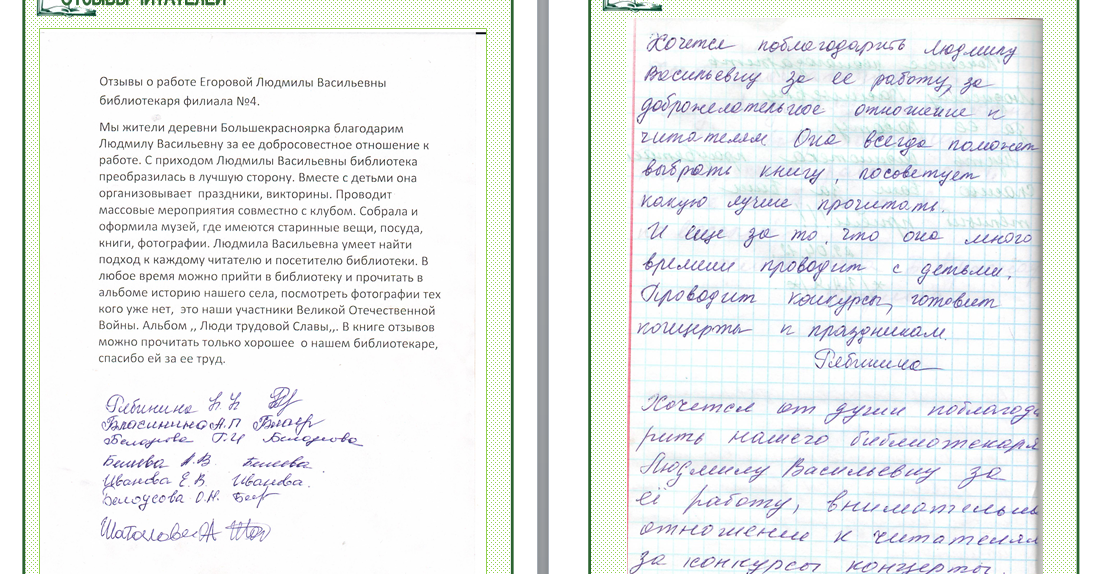 ОТЗЫВЫ ЧИТАТЕЛЕЙ
Отзывы о работе Егоровой Людмилы Васильевны
библиотекаря филиала №4.
Мы жители деревни Большекрасноярка благодарим
Людмилу Васильевну за ее добросовестное отношение к
работе. С приходом Людмилы Васильевны библиотека
преобразилась в лучшую сторону. Вместе с детьми она
организовывает праздники, викторины. Проводит
массовые мероприятия совместно с клубом. Собрала и
оформила музей, где имеются старинные вещи, посуда,
книги, фотографии. Людмила Васильевна умеет найти
подход к каждому читателю и посетителю библиотеки. В
любое время можно прийти в библиотеку и прочитать в
альбоме историю нашего села, посмотреть фотографии тех
кого уже нет, это наши участники Великой Отечественной
Войны. Альбом ,, Люди трудовой Славы,,. В книге отзывов
можно прочитать только хорошее о нашем библиотекаре,
спасибо ей за ее труд.
Рябинина
Власинина А.П
Г.И
А.В.
Иванова Е.В Иванова.
Белоусова О.Н.
Хочется поблагодарить Людмилу
Васильевну за ее работу, за
доброжелательное отношение к
читателям. Она всегда поможет
выбрать книгу, посоветует
какую лучше прочитать.
И еще за то, что она много
времени проводит с детьми.
Проводит конкурсы, готовит
концерты к праздникам.
Рябинина
Хочется от души поблагода
рить нашего библиотекаря
Людмилу Васильевну за
её работу, внимательн
отношение к читателям
за конкурсы концерты.